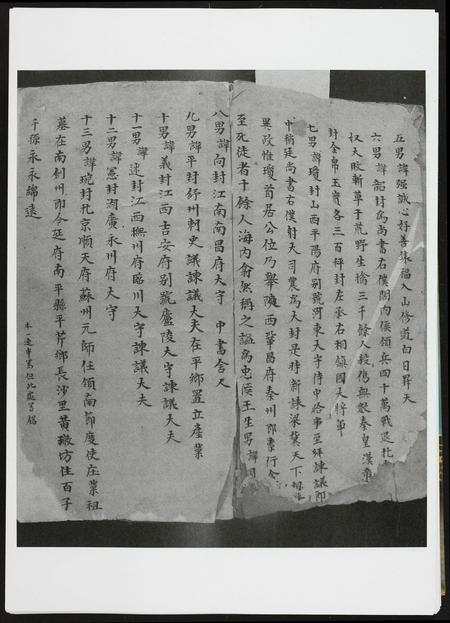 五男諱强誠心好善集福入山修道白日昇天
六男諱韶封為尚書右僕閣内侯領兵四十萬戰退北
奴大敗斬草于荒野生擒三千餘人殺傷無數秦皇漢帝
封金帛玉寶各三百秤封左丞右相鎮國大將軍
七男諱瓊封山西平陽府别號河東大守侍中給事至拜諫議郎
中稍廷尚書右僕射天司農為大封是持新諫梁冀天下
異政惟瓊首居公位乃舉隴西鞏昌府秦州郡
至死徒者千餘人海内翕然稱之諡為忠侯王生男諱
八男諱向封江南南昌府大守 中書舍人
九男諱平封舒州刺史議諫議大夫在平鄉置立産業
十男諱義封江西吉安府别號廬陵大守諫議大夫
十一男諱述封江西撫川府臨川大守諫議大夫
十二男諱憲封湖廣永川府大守
十三男諱琬封北京順天府蘇州元師任領南節度使庄業祖
墓在南劍州即今延府南平縣平芹鄉長沙里黃墩坊住百子
千孫永永錦遠